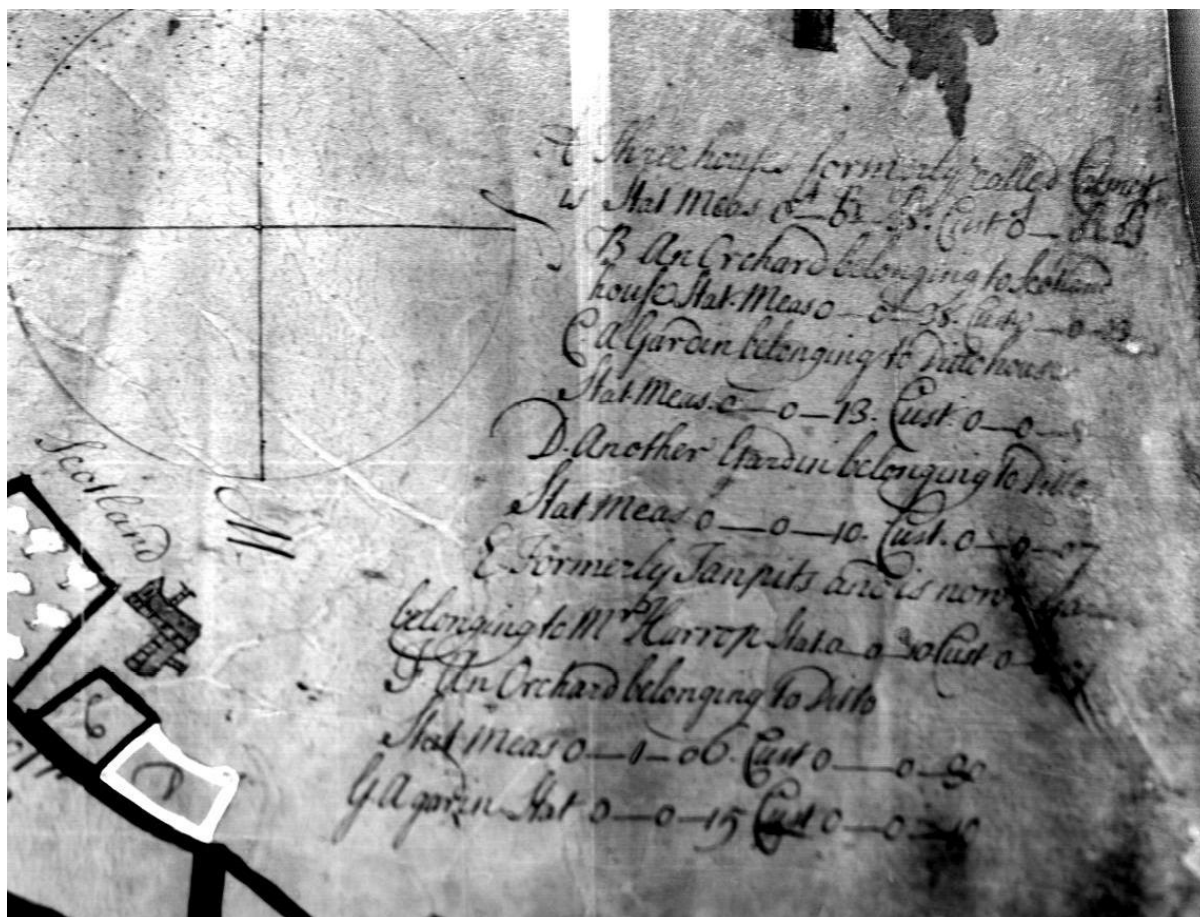 A Three house formerly called
is Stat Meas Cust
B An Orchard belonging to Scotland
house Stat. Meas 0—0—38. Cust 0—0—23
C. A Gardin belonging to Ditto house
Stat. Meas. 0—0—13. Cust. 0—0—8
D. Another Gardin belonging to Ditto
Stat Meas 0—0—10. Cust. 0—0—07
E Formerly Tanpits and is now
belonging to Mr Harrop Stat 0 0 30 Cust 0
F An Orchard belonging to Ditto
Stat Meas 0—1—06. Cust 0—0—30
G A gardin Stat 0—0—15 Cust 0—0—10
Scotland
W
C
D